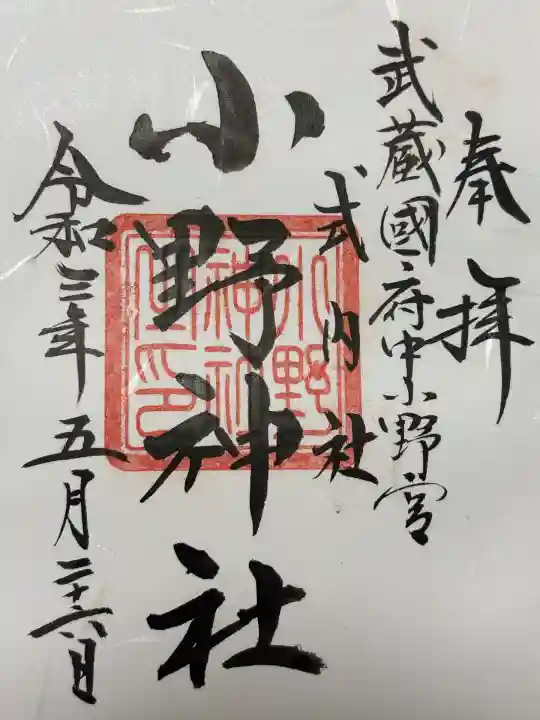 奉拝
武蔵國府中小野宮
式内社
小野神社
小野
神社
宮印
令和三年五月二十六日